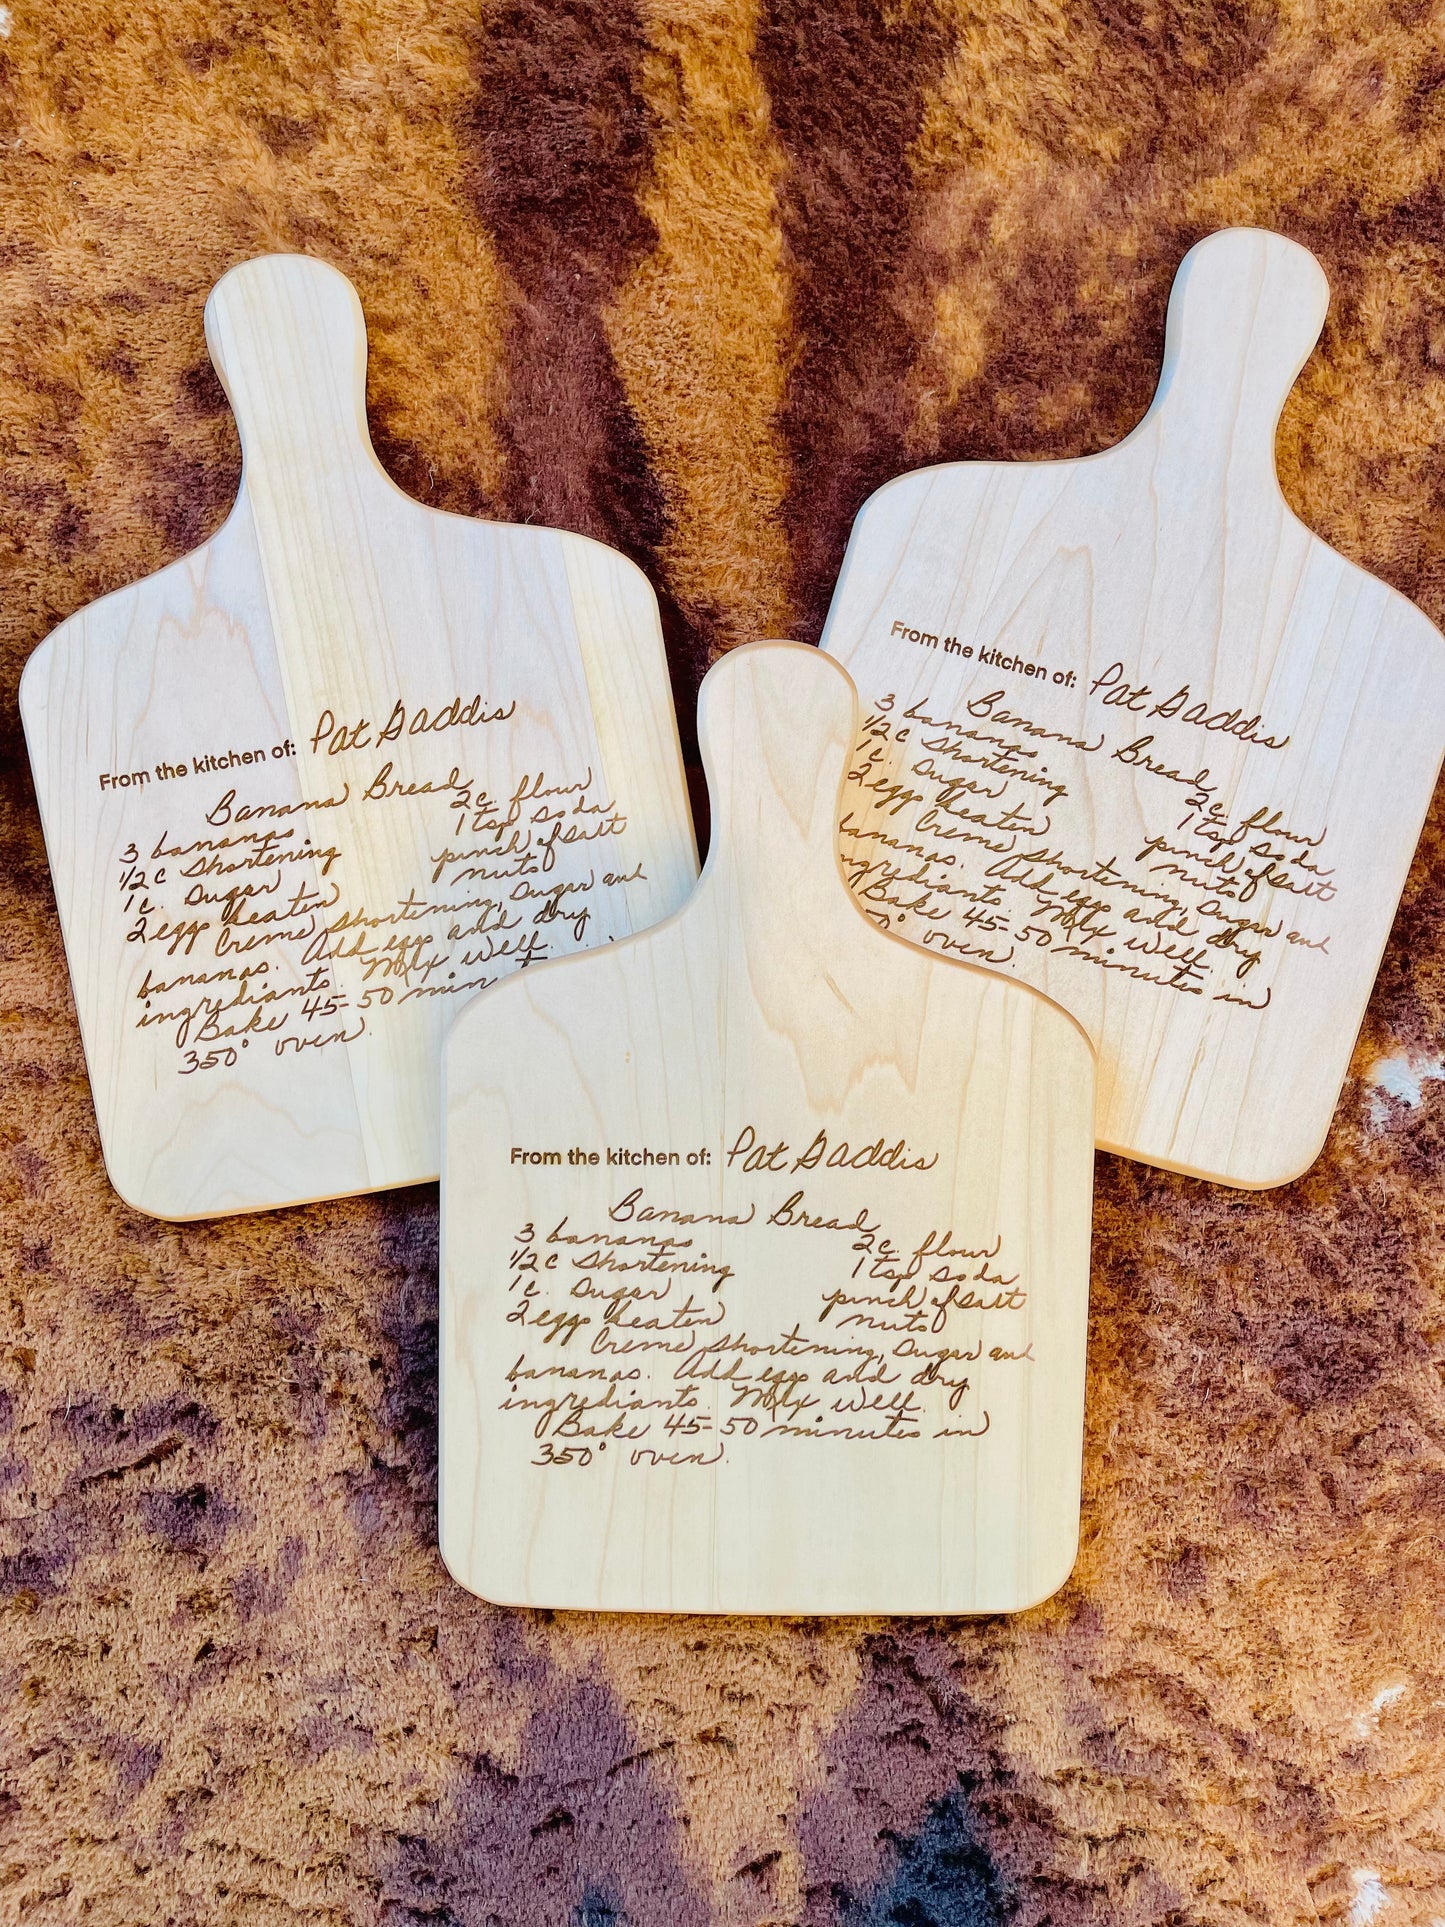 From the kitchen of: Pat Gaddis
Banana Bread
3 bananas 2c. flour
1/2 c shortening 1 tsp soda
1 c. sugar pinch of salt
2 eggs beaten nuts
Creme shortening, sugar and
bananas. Add eggs and dry
ingrediants. Mix well.
Bake 45-50 min
350° oven.
From the kitchen of: Pat Gaddis
Banana Bread
3 bananas 2c. flour
1/2 c shortening 1 tsp soda
1 c. sugar pinch of salt
2 eggs beaten nuts
Creme shortening, sugar and
bananas. Add eggs and dry
ngrediants. Mix well.
Bake 45-50 minutes in
50° oven.
From the kitchen of: Pat Gaddis
Banana Bread
3 bananas 2c. flour
1/2 c shortening 1 tsp soda
1 c. sugar pinch of salt
2 eggs beaten nuts
Creme shortening, sugar and
bananas. Add eggs and dry
ingrediants. Mix well.
Bake 45-50 minutes in
350° oven.